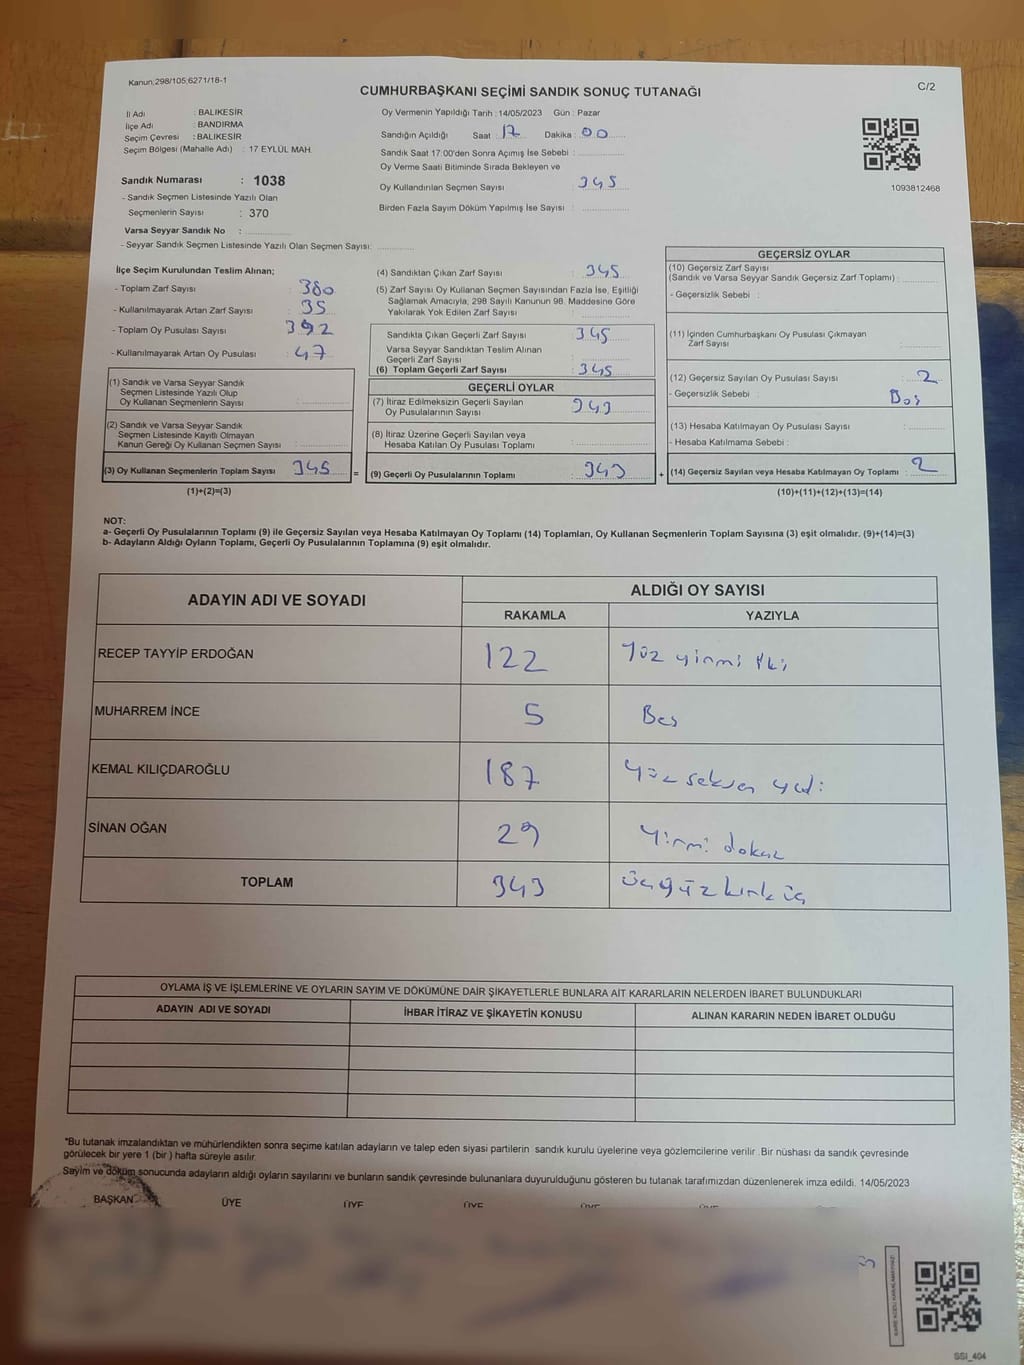 Kanun;298/105;6271/18-1
C/2
CUMHURBAŞKANI SEÇİMİ SANDIK SONUÇ TUTANAĞI
İl Adı : BALIKESİR
İlçe Adı : BANDIRMA
Seçim Çevresi : BALIKESİR
Seçim Bölgesi (Mahalle Adı) : 17 EYLÜL MAH.
Sandık Numarası : 1038
- Sandık Seçmen Listesinde Yazılı Olan
Seçmenlerin Sayısı : 370
Varsa Seyyar Sandık No :
- Seyyar Sandık Seçmen Listesinde Yazılı Olan Seçmen Sayısı:
Oy Vermenin Yapıldığı Tarih : 14/05/2023 Gün : Pazar
Sandığın Açıldığı Saat : 17 Dakika : 00
Sandık Saat 17:00'den Sonra Açımış İse Sebebi :
Oy Verme Saati Bitiminde Sırada Bekleyen ve
Oy Kullandırılan Seçmen Sayısı : 345
Birden Fazla Sayım Döküm Yapılmış İse Sayısı :
1093812468
İlçe Seçim Kurulundan Teslim Alınan;
- Toplam Zarf Sayısı : 380
- Kullanılmayarak Artan Zarf Sayısı : 35
- Toplam Oy Pusulası Sayısı : 392
- Kullanılmayarak Artan Oy Pusulası : 47
(1) Sandık ve Varsa Seyyar Sandık
Seçmen Listesinde Yazılı Olup
Oy Kullanan Seçmenlerin Sayısı :
(2) Sandık ve Varsa Seyyar Sandık
Seçmen Listesinde Kayıtlı Olmayan
Kanun Gereği Oy Kullanan Seçmen Sayısı :
(3) Oy Kullanan Seçmenlerin Toplam Sayısı : 345 =
(1)+(2)=(3)
(4) Sandıktan Çıkan Zarf Sayısı : 345
(5) Zarf Sayısı Oy Kullanan Seçmen Sayısından Fazla İse, Eşitliği
Sağlamak Amacıyla, 298 Sayılı Kanunun 98. Maddesine Göre
Yakılarak Yok Edilen Zarf Sayısı :
Sandıkla Çıkan Geçerli Zarf Sayısı : 345
Varsa Seyyar Sandıktan Teslim Alınan
Geçerli Zarf Sayısı :
(6) Toplam Geçerli Zarf Sayısı : 345
GEÇERLİ OYLAR
(7) İtiraz Edilmeksizin Geçerli Sayılan
Oy Pusulalarının Sayısı : 343
(8) İtiraz Üzerine Geçerli Sayılan veya
Hesaba Katılan Oy Pusulası Toplamı :
(9) Geçerli Oy Pusulalarının Toplamı : 343 +
GEÇERSİZ OYLAR
(10) Geçersiz Zarf Sayısı
(Sandık ve Varsa Seyyar Sandık Geçersiz Zarf Toplamı) :
- Geçersizlik Sebebi :
(11) İçinden Cumhurbaşkanı Oy Pusulası Çıkmayan
Zarf Sayısı :
(12) Geçersiz Sayılan Oy Pusulası Sayısı : 2
- Geçersizlik Sebebi : Boş
(13) Hesaba Katılmayan Oy Pusulası Sayısı :
- Hesaba Katılmama Sebebi :
(14) Geçersiz Sayılan veya Hesaba Katılmayan Oy Toplamı : 2
(10)+(11)+(12)+(13)=(14)
NOT:
a- Geçerli Oy Pusulalarının Toplamı (9) ile Geçersiz Sayılan veya Hesaba Katılmayan Oy Toplamı (14) Toplamları, Oy Kullanan Seçmenlerin Toplam Sayısına (3) eşit olmalıdır. (9)+(14)=(3)
b- Adayların Aldığı Oyların Toplamı, Geçerli Oy Pusulalarının Toplamına (9) eşit olmalıdır.
ADAYIN ADI VE SOYADI
ALDIĞI OY SAYISI
RAKAMLA YAZIYLA
RECEP TAYYİP ERDOĞAN 122 Yüz yirmi iki
MUHARREM İNCE 5 Beş
KEMAL KILIÇDAROĞLU 187 Yüz seksen yedi
SİNAN OĞAN 29 Yirmi dokuz
TOPLAM 343 üçyüz kırk üç
OYLAMA İŞ VE İŞLEMLERİNE VE OYLARIN SAYIM VE DÖKÜMÜNE DAİR ŞİKAYETLERLE BUNLARA AİT KARARLARIN NELERDEN İBARET BULUNDUKLARI
ADAYIN ADI VE SOYADI İHBAR İTİRAZ VE ŞİKAYETİN KONUSU ALINAN KARARIN NEDEN İBARET OLDUĞU
*Bu tutanak imzalandıktan ve mühürlendikten sonra seçime katılan adayların ve talep eden siyasi partilerin sandık kurulu üyelerine veya gözlemcilerine verilir. Bir nüshası da sandık çevresinde
görülecek bir yere 1 (bir) hafta süreyle asılır.
Sayım ve döküm sonucunda adayların aldığı oyların sayılarını ve bunların sandık çevresinde bulunanlara duyurulduğunu gösteren bu tutanak tarafımızdan düzenlenerek imza edildi. 14/05/2023
BAŞKAN ÜYE ÜYE ÜYE ÜYE ÜYE
SSI_404